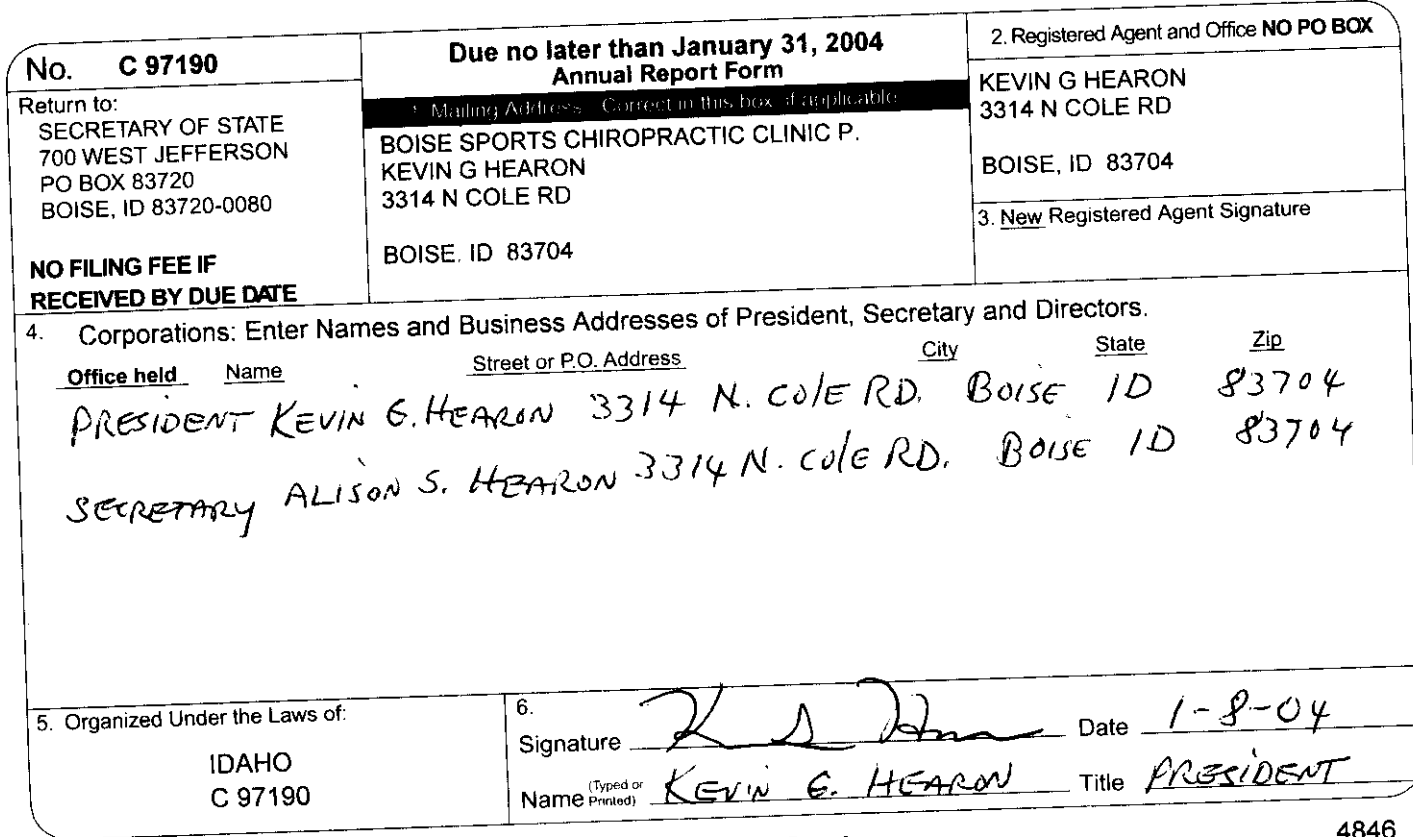 No. C 97190
Return to:
SECRETARY OF STATE
700 WEST JEFFERSON
PO BOX 83720
BOISE, ID 83720-0080
NO FILING FEE IF
RECEIVED BY DUE DATE
Due no later than January 31, 2004
Annual Report Form
1. Mailing Address. Correct in this box if applicable
BOISE SPORTS CHIROPRACTIC CLINIC P.
KEVIN G HEARON
3314 N COLE RD
BOISE, ID 83704
2. Registered Agent and Office NO PO BOX
KEVIN G HEARON
3314 N COLE RD
BOISE, ID 83704
3. New Registered Agent Signature
4. Corporations: Enter Names and Business Addresses of President, Secretary and Directors.
Office held Name Street or P.O. Address City State Zip
PRESIDENT KEVIN G. HEARON 3314 N. COLE RD. BOISE ID 83704
SECRETARY ALISON S. HEARON 3314 N. COLE RD. BOISE ID 83704
5. Organized Under the Laws of:
IDAHO
C 97190
6.
Signature Date 1-8-04
Name (Typed or Printed) KEVIN G. HEARON Title PRESIDENT
4846